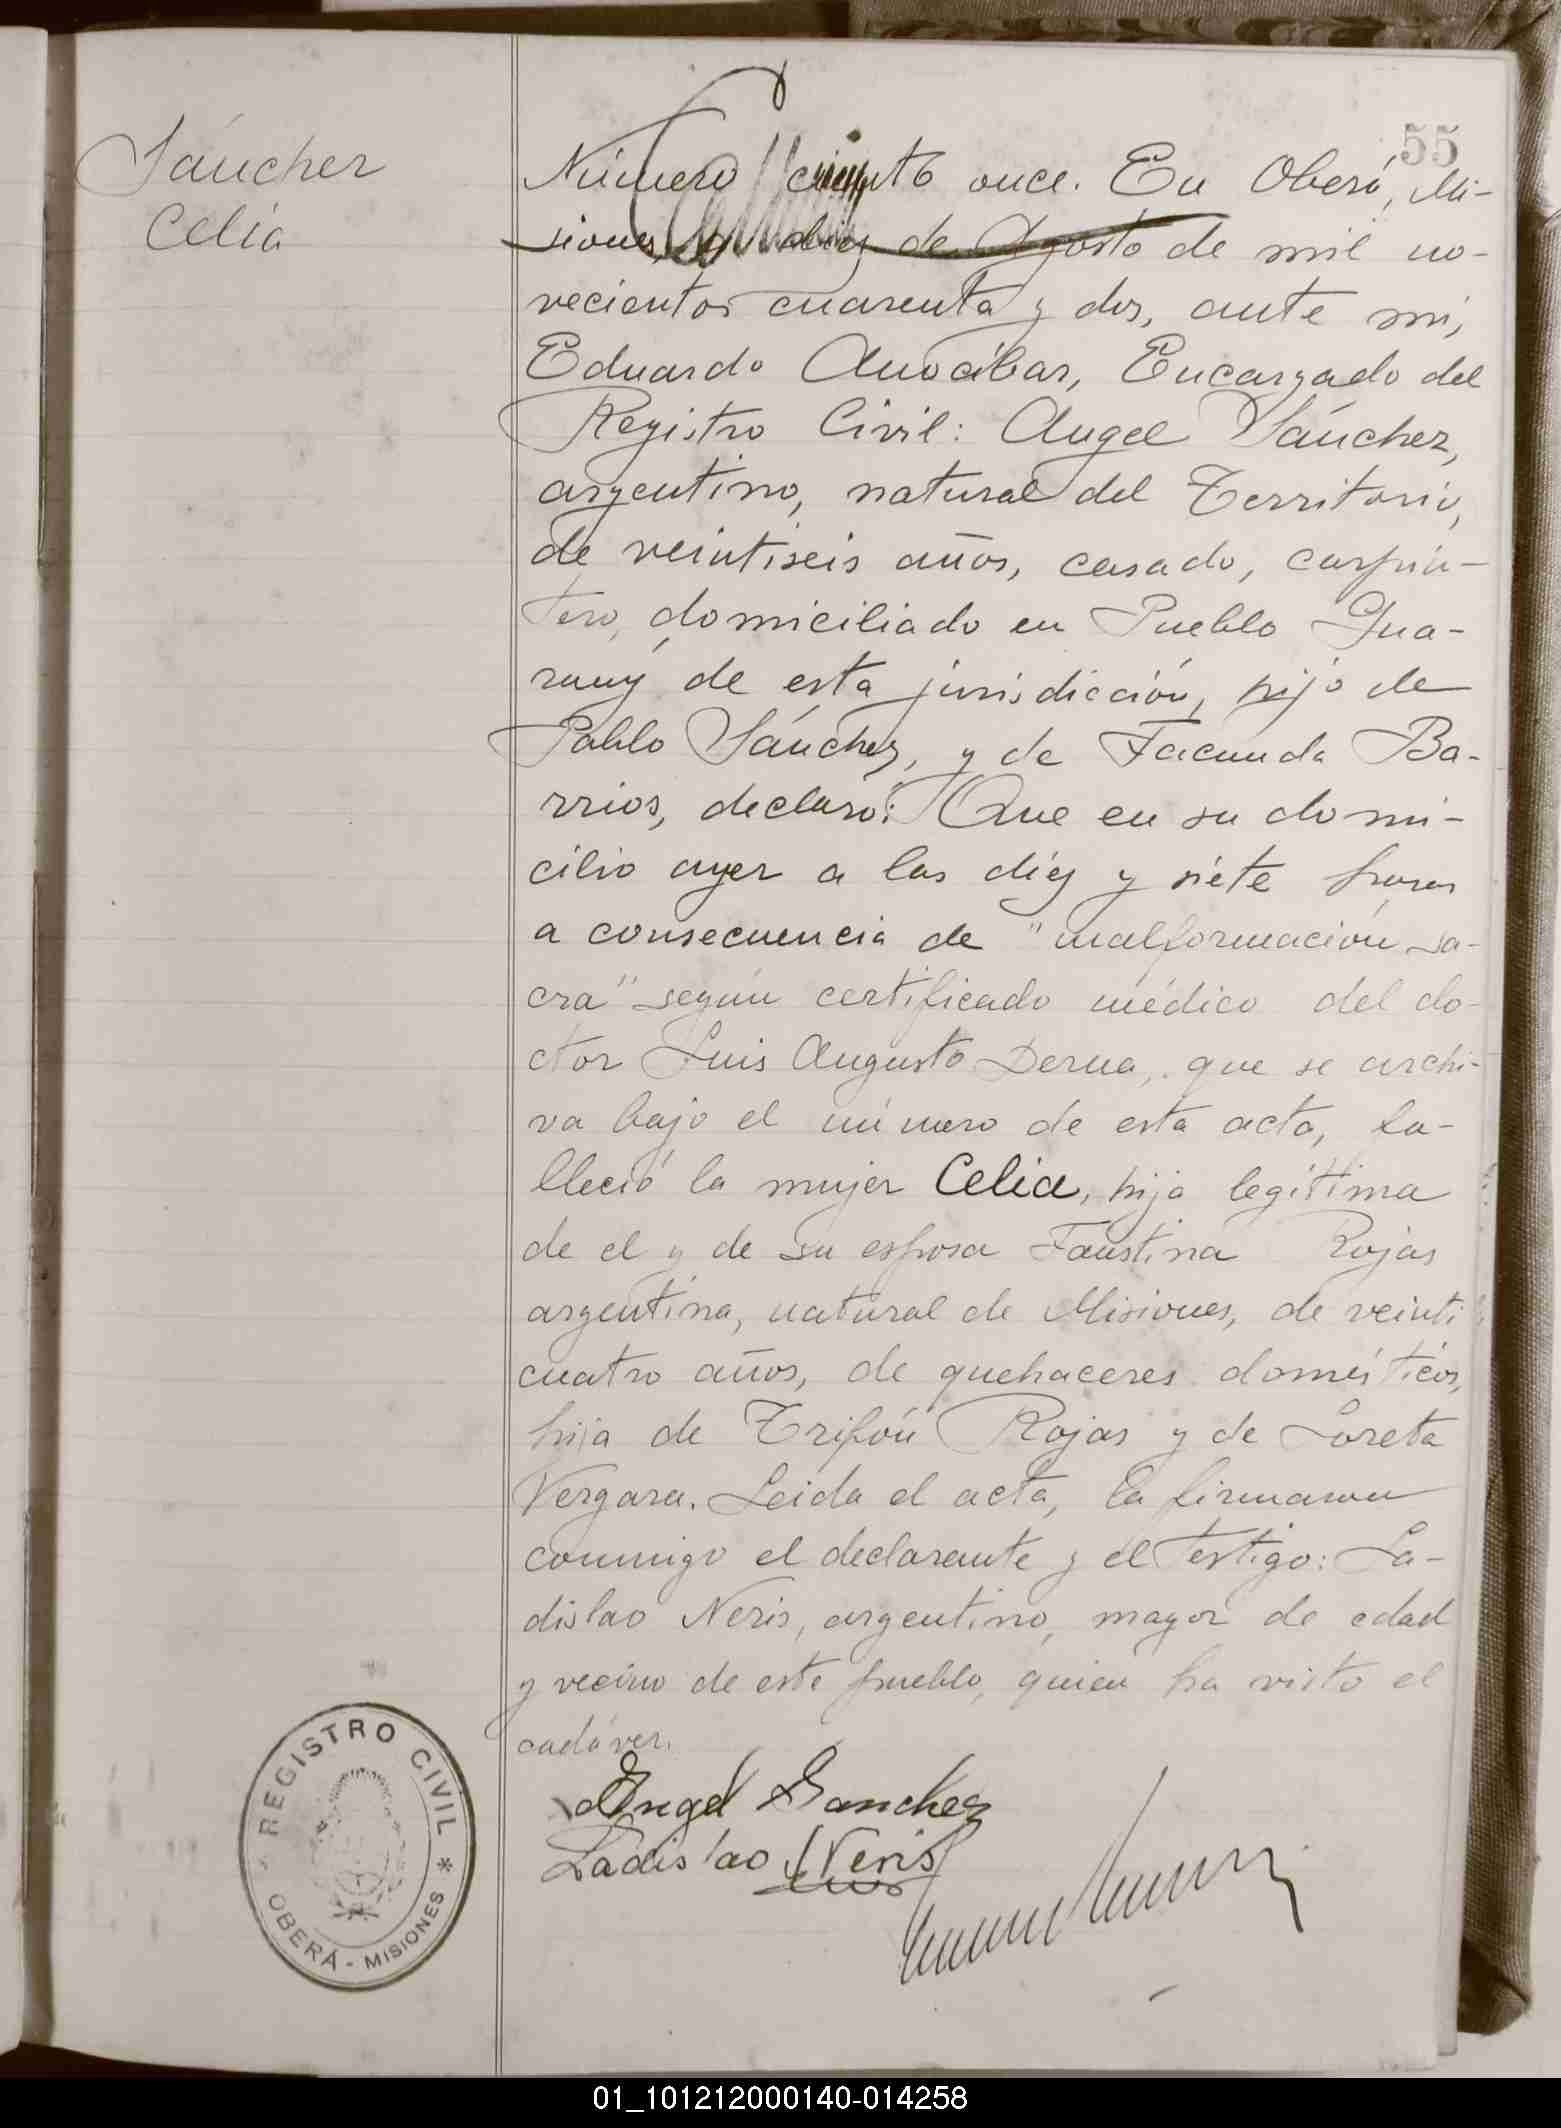 55
Sáncher
Celia
Número ciento once. En Oberá, Mi-
siones, a diez de Agosto de mil no-
vecientos cuarenta y dos, ante mi,
Eduardo Anocibar, Encargado del
Registro Civil: Angel Sánchez,
argentino, natural del Territorio,
de veintiseis años, casado, carpin-
tero, domiciliado en Pueblo Gua-
rany de esta jurisdicción, hijo de
Pablo Sánchez, y de Facunda Ba-
rrios, declaró: Que en su domi-
cilio ayer a las diéz y siéte horas
a consecuencia de "malformación sa-
cra" según certificado médico del do-
ctor Luis Augusto Derna, que se archi-
va bajo el número de esta acta, fa-
lleció la mujer Celia, hija legítima
de el y de su esposa Faustina Rojas
argentina, natural de Misiones, de veinti
cuatro años, de quehaceres domésticos,
hija de Trifón Rojas y de Loreta
Vergara. Leida el acta, la firmaron
conmigo el declarante y el testigo: La-
dislao Neris, argentino, mayor de edad
y vecino de este pueblo, quien ha visto el
cadáver.
Angel Sanchez
Ladislao Neris
REGISTRO CIVIL * OBERÁ - MISIONES *
01_101212000140-014258